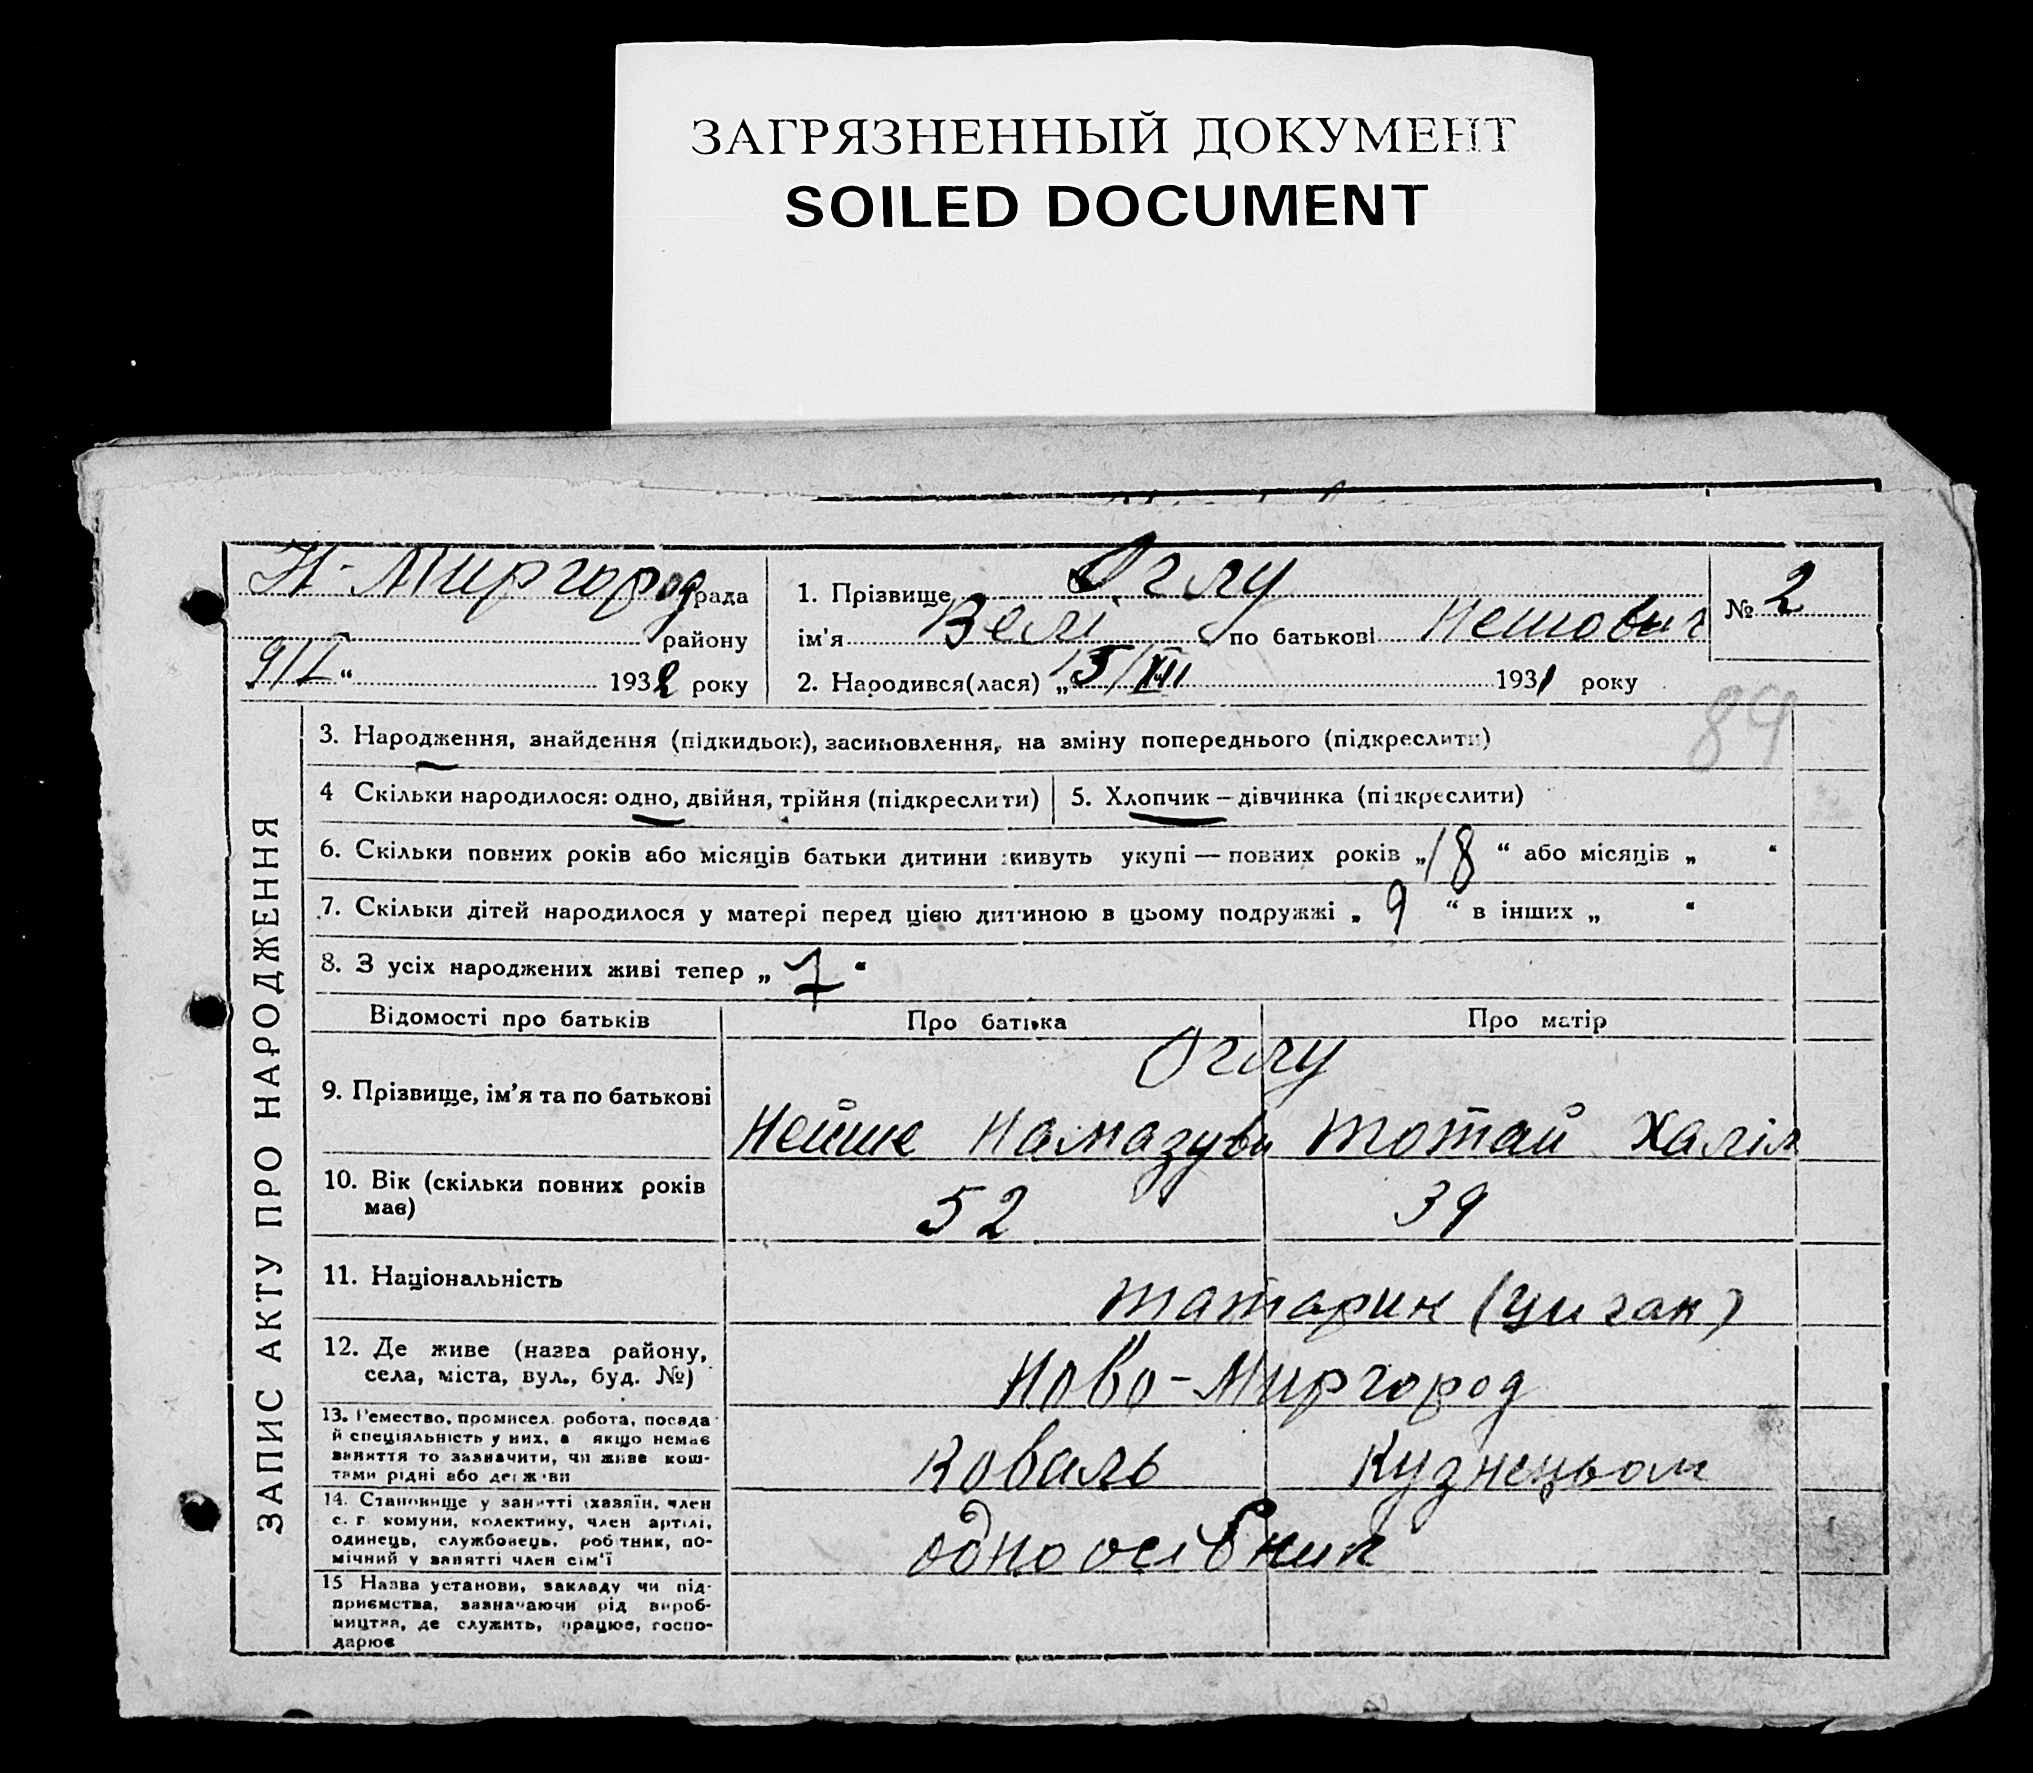 ЗАГРЯЗНЕННЫЙ ДОКУМЕНТ
SOILED DOCUMENT
Н-Миргород рада
району
9/I “ 1932 року
1. Прізвище Оглу
ім'я Велі по батькові Нешович
2. Народився(лася) „15/XII 1931 року
№ 2
89
ЗАПИС АКТУ ПРО НАРОДЖЕННЯ
3. Народження, знайдення (підкидьок), засиновлення, на зміну попереднього (підкреслити)
4 Скільки народилося: одно, двійня, трійня (підкреслити) 5. Хлопчик — дівчинка (підкреслити)
6. Скільки повних років або місяців батьки дитини живуть укупі — повних років „18“ або місяців „ “
7. Скільки дітей народилося у матері перед цією дитиною в цьому подружжі „ 9 “ в інших „ “
8. З усіх народжених живі тепер „ 7 “
Відомості про батьків Про батька Про матір
Оглу
9. Прізвище, ім'я та по батькові Нейше Намазуви Тотай Халіл
10. Вік (скільки повних років має) 52 39
11. Національність татарин (циган)
12. Де живе (назва району, села, міста, вул., буд. №) Ново-Миргород
13. Ремество, промисел, робота, посада
й спеціяльність у них, а якщо немає
заняття то зазначити, чи живе кош-
тами рідні або держави
Коваль Кузнецьом
14. Становище у занятті (хазяїн, член
с. г. комуни, колективу, член артілі,
одинець, службовець, робітник, по-
мічний у занятті член сім'ї
одноосібник
15 Назва установи, закладу чи під-
приємства, зазначаючи рід вироб-
ництва, де служить, працює, госпо-
дарює